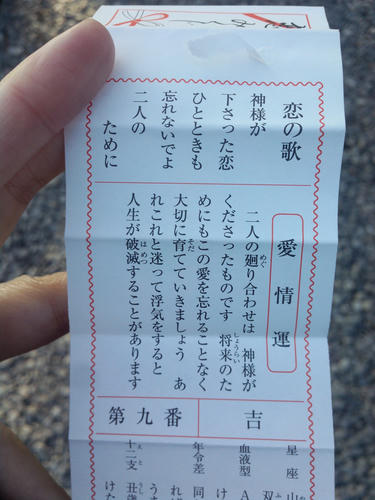 恋の歌
神様が
下さった恋
ひとときも
忘れないでよ
二人の
ために
愛情運
二人の廻り合わせは 神様が
めぐ
くださったものです 将来のた
しょうらい
めにもこの愛を忘れることなく
大切に育てていきましょう あ
そだ
れこれと迷って浮気をすると
人生が破滅することがあります
はめつ
吉
第九番
星座
血液型 A
年令差 同
十二支 丑
えと